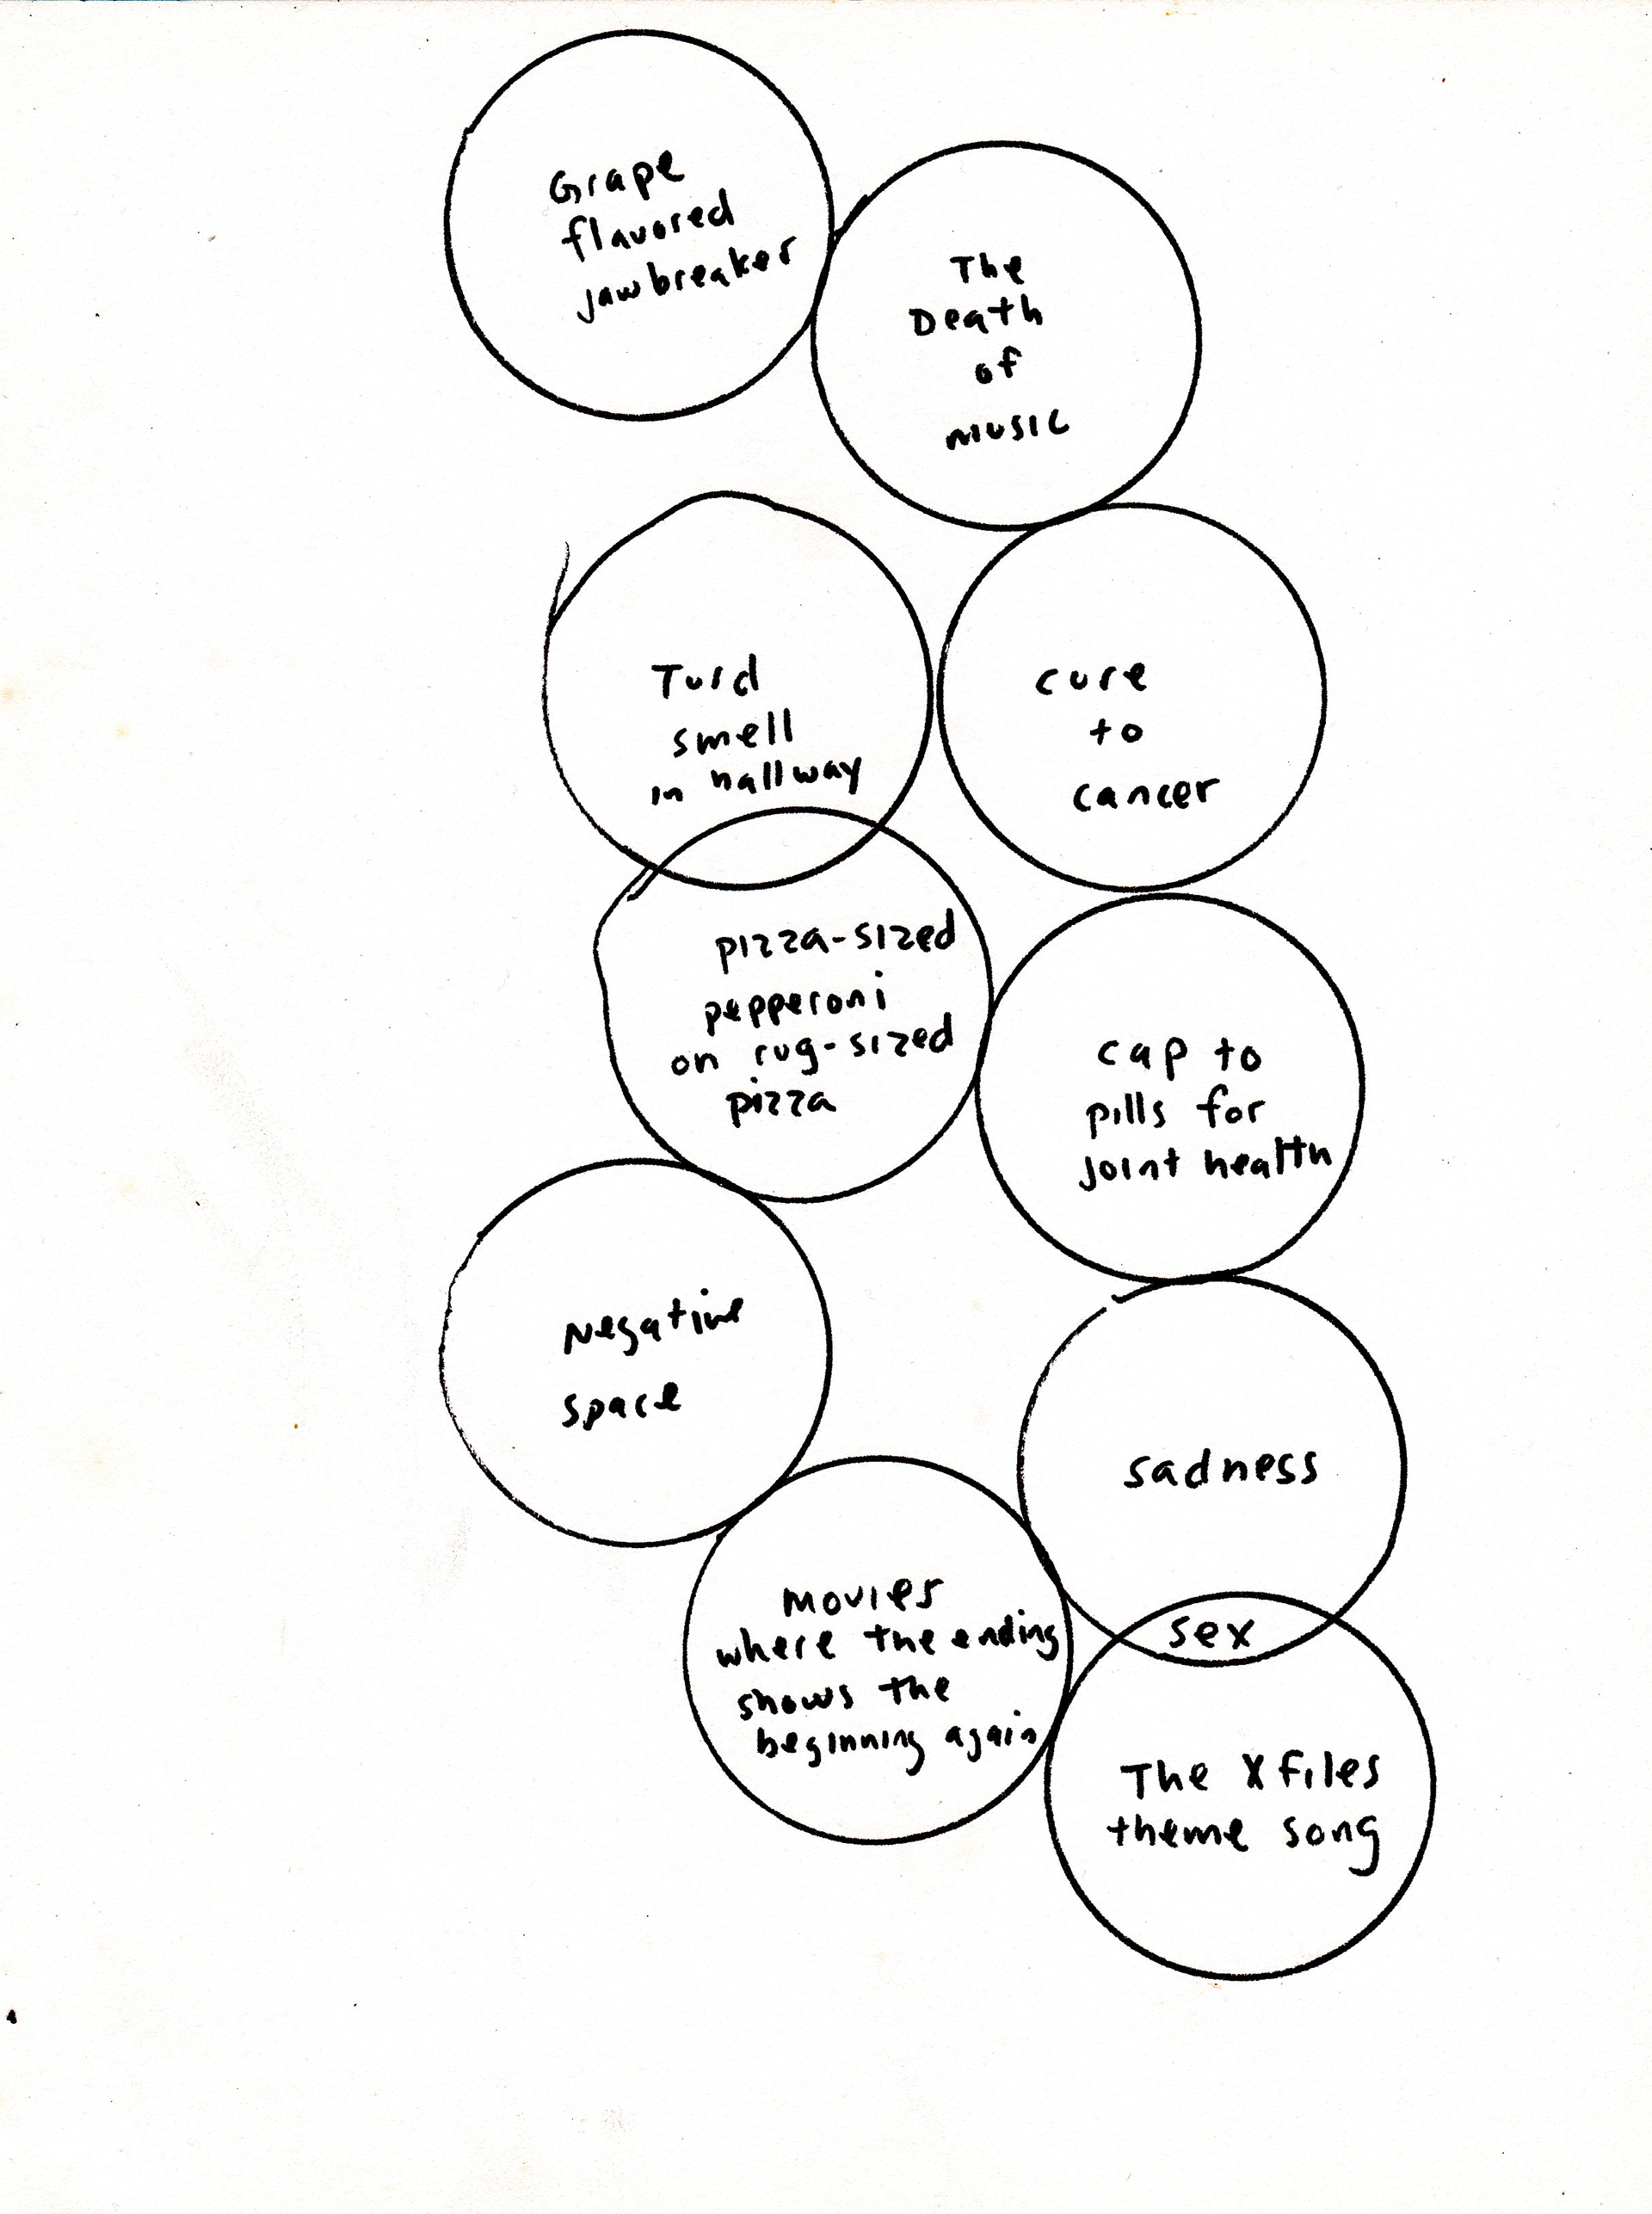 Grape
flavored
jawbreaker
The
Death
of
music
Turd
smell
in hallway
cure
to
cancer
pizza-sized
pepperoni
on rug-sized
pizza
cap to
pills for
joint health
Negative
space
sadness
movies
where the ending
shows the
beginning again
sex
The X files
theme song